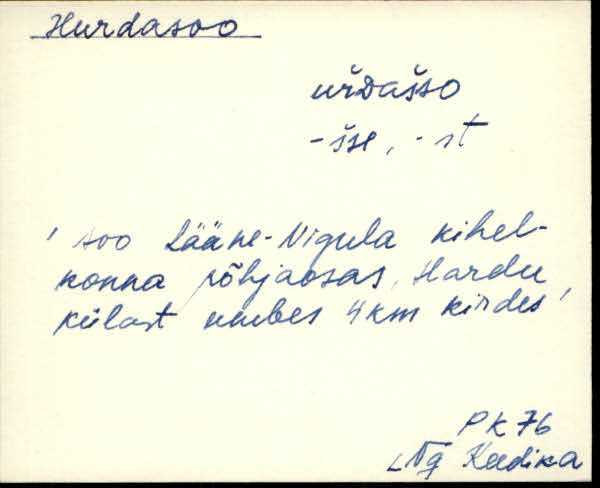 Hurdasoo
uřDašso
-šse, -st
' soo Lääne-Nigula kihel-
konna põhjaosas, Hardu
külast umbes 4 km kirdes '
PK 76
LNg Keedika